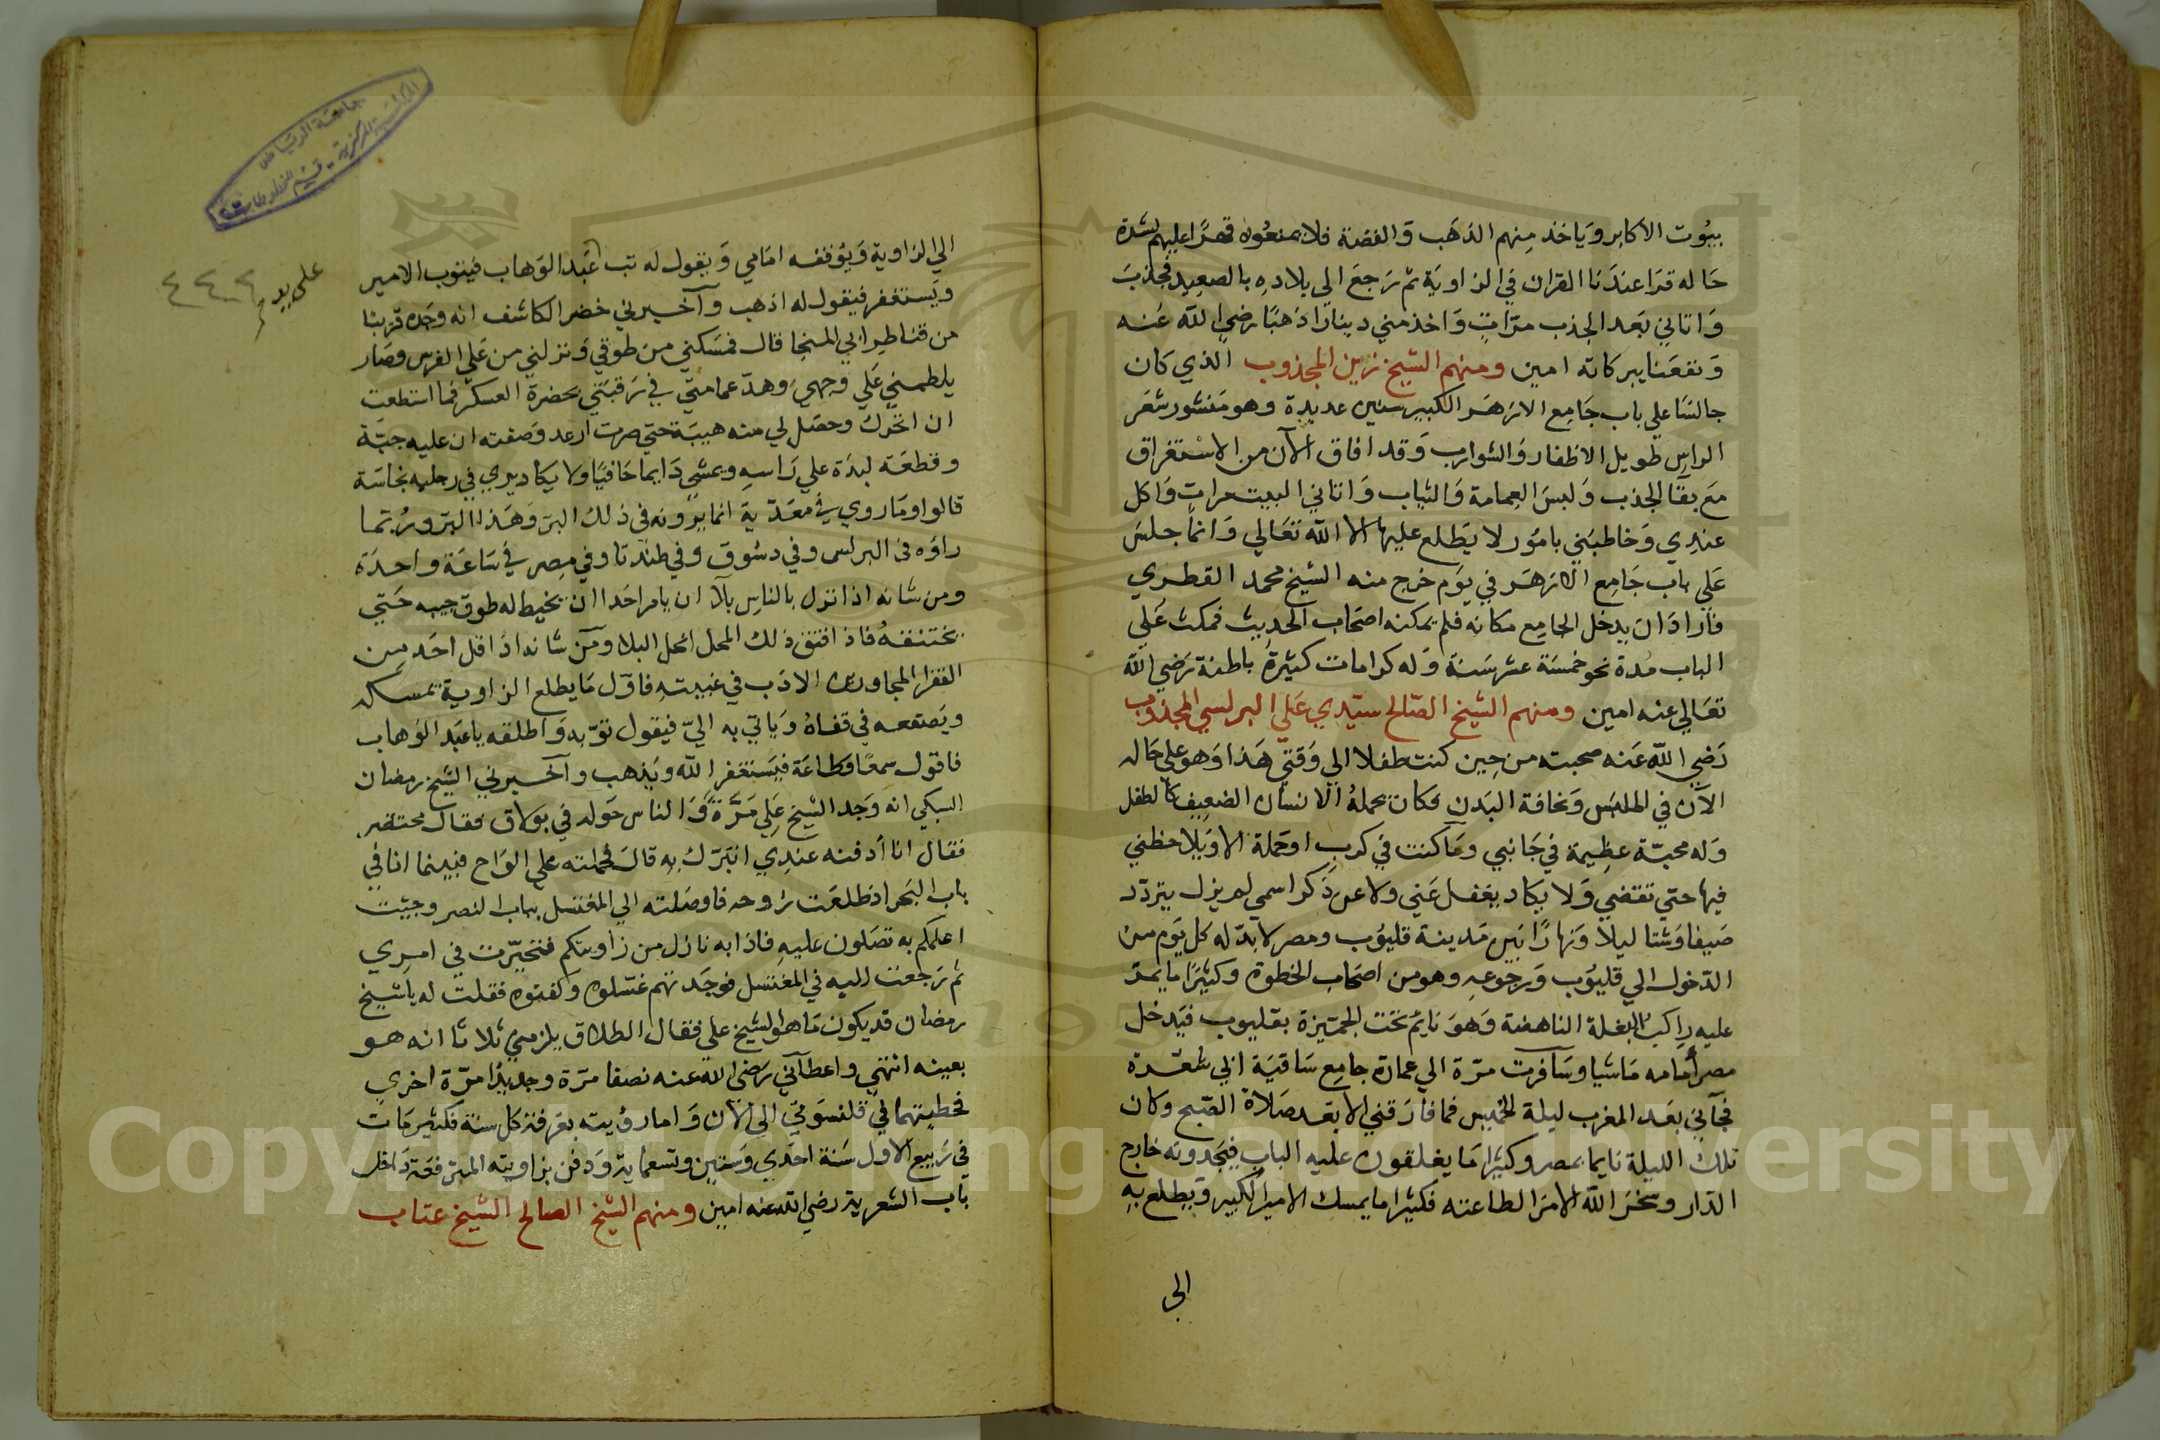 بيوت الاكابر وياخذ منهم الذهب والفضة فلا يمنعوه قهرا عليهم لشدة
حاله قرا عندنا القران في الزاوية ثم رجع الي بلاده بالصعيد فجذب
واتاني بعد الجذب مرات واخذ مني دينارا ذهبا رضي الله عنه
ونفعنا ببركاته امين ومنهم الشيخ زين المجذوب الذي كان
جالسا علي باب جامع الازهر الكبير سنين عديدة وهو منشور شعر
الراس طويل الاظفار والشوارب وقد افاق الآن من الاستغراق
مع بقا الجذب ولبس العمامة والثياب واتاني البيت مرات واكل
عندي وخاطبني بامور لا يطلع عليها الا الله تعالي وانما جلس
علي باب جامع الازهر في يوم خرج منه الشيخ محمد القطري
فاراد ان يدخل الجامع مكانه فلم يمكنه اصحاب الحديث فمكث علي
الباب مدة نحو خمسة عشر سنة وله كرامات كثيرة باطنة رضي الله
تعالي عنه امين ومنهم الشيخ الصالح سيدي علي البرلسي المجذوب
رضي الله عنه صحبته من حين كنت طفلا الي وقتي هذا وهو علي حاله
الآن في الملبس ونحافة البدن فكان يحمله الانسان الضعيف كالطفل
وله محبة عظيمة في جانبي وما كنت في كرب او حملة الا ويلاحظني
فيها حتي تقضي ولا يكاد يغفل عني ولا عن ذكر اسمي لم يزل يتردد
صيفا وشتا ليلا ونهارا بين مدينة قليوب ومصر لابد له كل يوم من
الدخول الي قليوب ورجوعه وهو من اصحاب الخطوة وكثيرا ما يمر
عليه راكب البغلة الناهضة وهو نايم تحت الجميزة بقليوب فيدخل
مصر أمامه ماشيا وسافرت مرة الي عمارة جامع ساقية ابي شعرة
فجآني بعد المغرب ليلة الخميس فما فارقني الا بعد صلاة الصبح وكان
تلك الليلة نايما بمصر وكثيرا ما يغلقون عليه الباب فيجدونه خارج
الدار وسخر الله الامرا لطاعته فكثيرا ما يمسك الامير الكبير ويطلع به
الي
الي الزاوية ويوقفه امامي ويقول له تب لعبد الوهاب فيتوب الامير
ويستغفر فيقول له اذهب وآخبرني خضر الكاشف انه وجده قريبا
من قناطر ابي المنجا قال فمسكني من طوقي ونزلني من علي الفرس وصار
يلطمني علي وجهي وهد عمامتي في رقبتي بحضرة العسكر فما استطعت
ان اتحرك وحصل لي منه هيبة حتي صرت ارعد وصفته ان عليه جبة
وقطعة لبدة علي راسه ويمشي دايما حافيا ولا يكاد يري في رجليه نجاسة
قالوا وما روي في معدية انما يرونه في ذلك البر وهذا البر وربما
راؤه في البرلس وفي دسوق وفي طندتا وفي مصر في ساعة واحدة
ومن شانه اذا نزل بالناس بلآ ان يامر احدا ان يخيط له طوق جبه حتي
يختنقه فاذا افتق ذلك المحل انحل البلا ومن شانه اذا قل احد من
الفقرا المجاورين الادب في غيبته فاول ما يطلع الزاوية يمسكه
ويصفعه في قفاه وياتي به الي فيقول توبه واطلقه يا عبد الوهاب
فاقول سمعا وطاعة فيستغفر الله ويذهب وآخبرني الشيخ رمضان
السبكي انه وجد الشيخ علي مرة والناس حوله في بولاق فقال محتضر
فقال انا أدفنه عندي اتبرك به قال فحملته علي الواح فبينما انا في
باب البحر اذ طلعت روحه فاوصلته الي المغتسل بباب النصر وجيت
اعلمكم به تصلون عليه فاذا به نازل من زاويتكم فتحيرت في امري
ثم رجعت اليه في المغتسل فوجدتهم غسلوه وكفنوه فقلت له يا شيخ
رمضان قد يكون ما هو الشيخ علي فقال الطلاق يلزمني ثلاثا انه هو
بعينه انتهي واعطآني رضي الله عنه نصفا مرة وجديدا مرة اخري
فخطيتهما في قلنسوتي الي الآن وامارؤيته بعرفة كل سنة فكثير مات
في ربيع الاول سنة احدي وستين وتسعماية ودفن بزاويته المرتفعة داخل
باب الشعرية رضي الله عنه امين ومنهم الشيخ الصالح الشيخ عتاب
علي يد
جامعة الرياض
المكتبة المركزية - قسم المخطوطات
Copyright © King Saud University